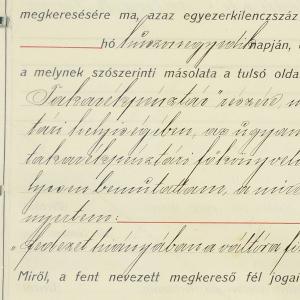 megkeresésére ma, azaz egyezerkilenczszáz
hó huszonegyedik napján,
a melynek szószerinti másolata a tulsó olda
Takarékpénztár" részén,
tári helyiségében, az ugyan
takarékpénztári főkönyvel
lyesen bemutattam, a mire
nyertem:
„fedezet hiányában a váltóra fi
Miről, a fent nevezett megkereső fél jogai